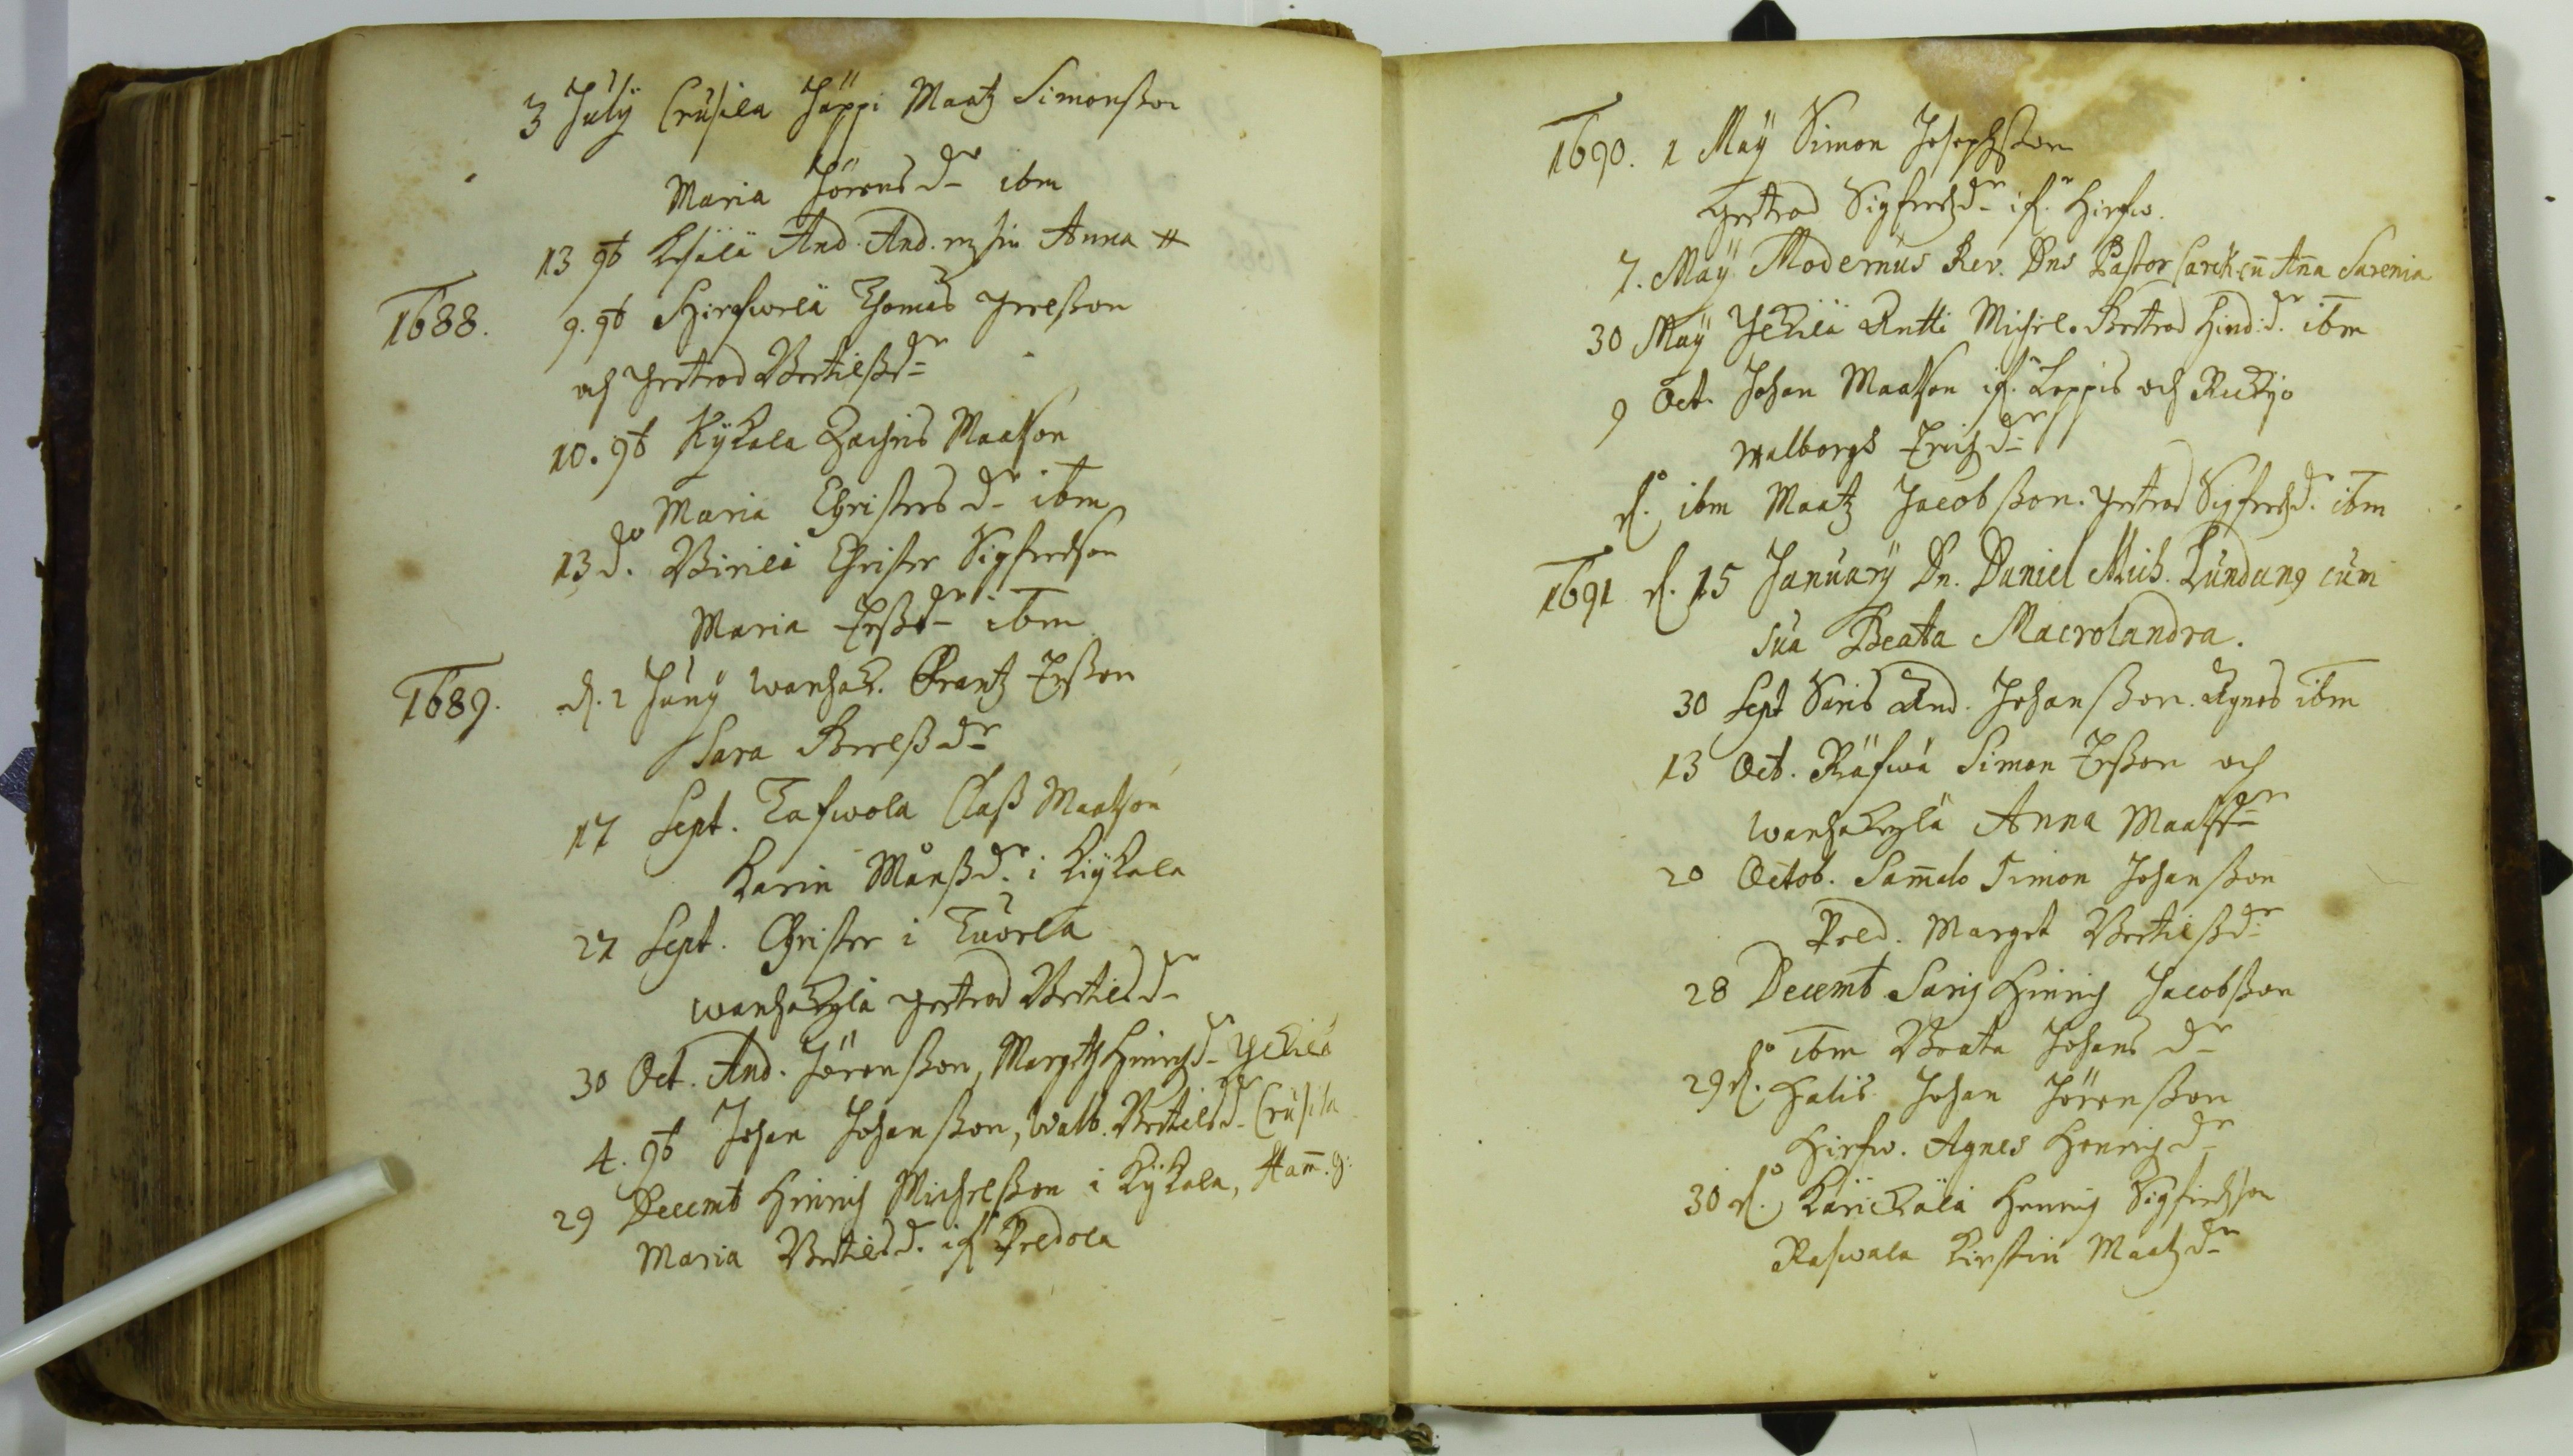 3 Julÿ Crusila Jäppi Matz Simonßon
Maria Jörens dr ibm
13 9b And. And. Anna
1688. 9. 9b Hirfwelä Thomas
och Gertrud Bertilßdr
10. 9b Kÿkala Zachris Matßon
Maria Christers dr ibm
13 do Christer Sigfredson
Maria Erßdr ibm
1689. d. 2 Junÿ wanhak. Frantz Erßon
Sara
17 Sept. Tafwola Claß Matzon
Karin Månßdr i Kiÿkala
27 Sept. Christer i Tuorla
wanhakylä Gertrud Bertilsdr
30 Oct. And. Jörenßon, Margeth Hinrichdr Yckilä
4. 9b Johan Johanßon, Walb. Bertilsdr Crusila
29 Decemb Hinrich Michelßon i Kÿkala, Ham. g:
Maria Bertilsdr if Peldola
1690. 1 Maÿ Simon Josephßon
Gertrud Sigfredzdr if. Hirfw.
7. Maÿ Modernus Rev. Dns Pastor Carck cu Ana Sarenia
30 Maÿ Yckilä Antti Michel. Hind: dr ibm
9 Oct. Johan Matßon if. Leppis och
Walborgh Erichdr
d. ibm Matz Jacobßon. Gertrud Sigfredzdr. ibm
1691 d. 15 Januarÿ Dn. Daniel Mich. Lundang cum
sua Beata Macrolandra.
30 Sept Saris And. Johanßon. Agnes ibm
13 Oct. Räfwä Simon Erßon och
wanhakylä Anna Matßdr
20 Octob. Sam̄alo Simon Johanßon
Peld. Marget Bertilßdr
28 Decemb Saris Hinrich Jacobßon
ibm Beata Johans dr
29 do Halis Johan Jörenßon
Hirfw. Agnes Henrichdr
30 do Kärickälä Henrich Sigfredßon
Rafwala Kirstin Matzdr